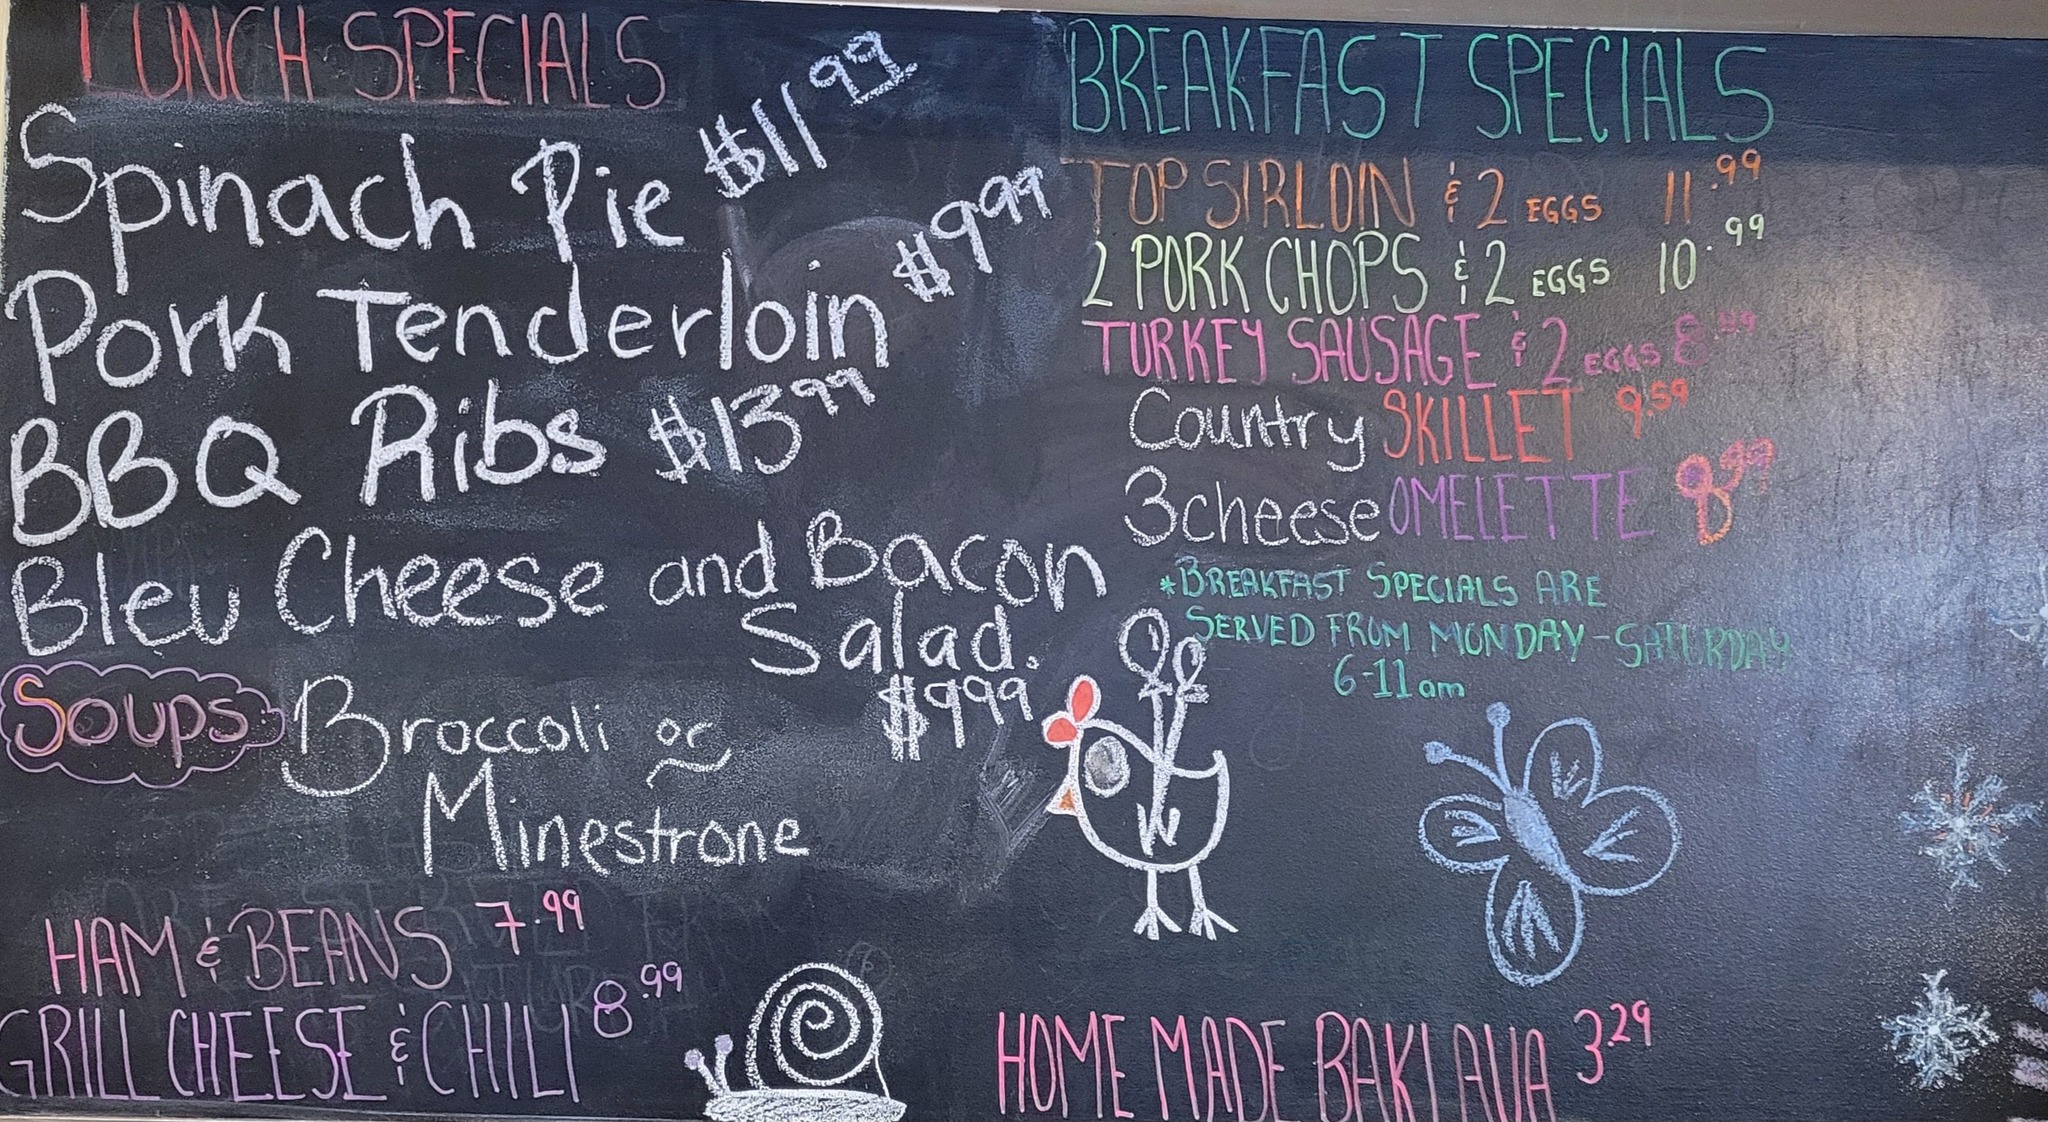 LUNCH SPECIALS
Spinach Pie $11.99
Pork Tenderloin $9.99
BBQ Ribs $13.99
Bleu Cheese and Bacon
Salad.
$9.99
Soups Broccoli or
Minestrone
HAM & BEANS 7.99
GRILL CHEESE & CHILI 8.99
BREAKFAST SPECIALS
TOP SIRLOIN & 2 EGGS 11.99
2 PORK CHOPS & 2 EGGS 10.99
TURKEY SAUSAGE & 2 EGGS 8.99
Country SKILLET 9.59
3 cheese OMELETTE 8.99
*BREAKFAST SPECIALS ARE
SERVED FROM MONDAY-SATURDAY
6-11am
HOME MADE BAKLAVA 3.29